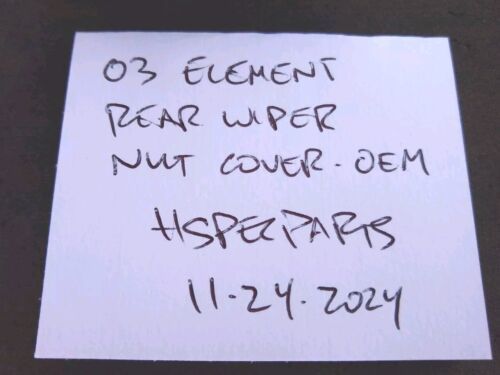 03 ELEMENT
REAR WIPER
NUT COVER - OEM
HSPECPARTS
11-24-2024